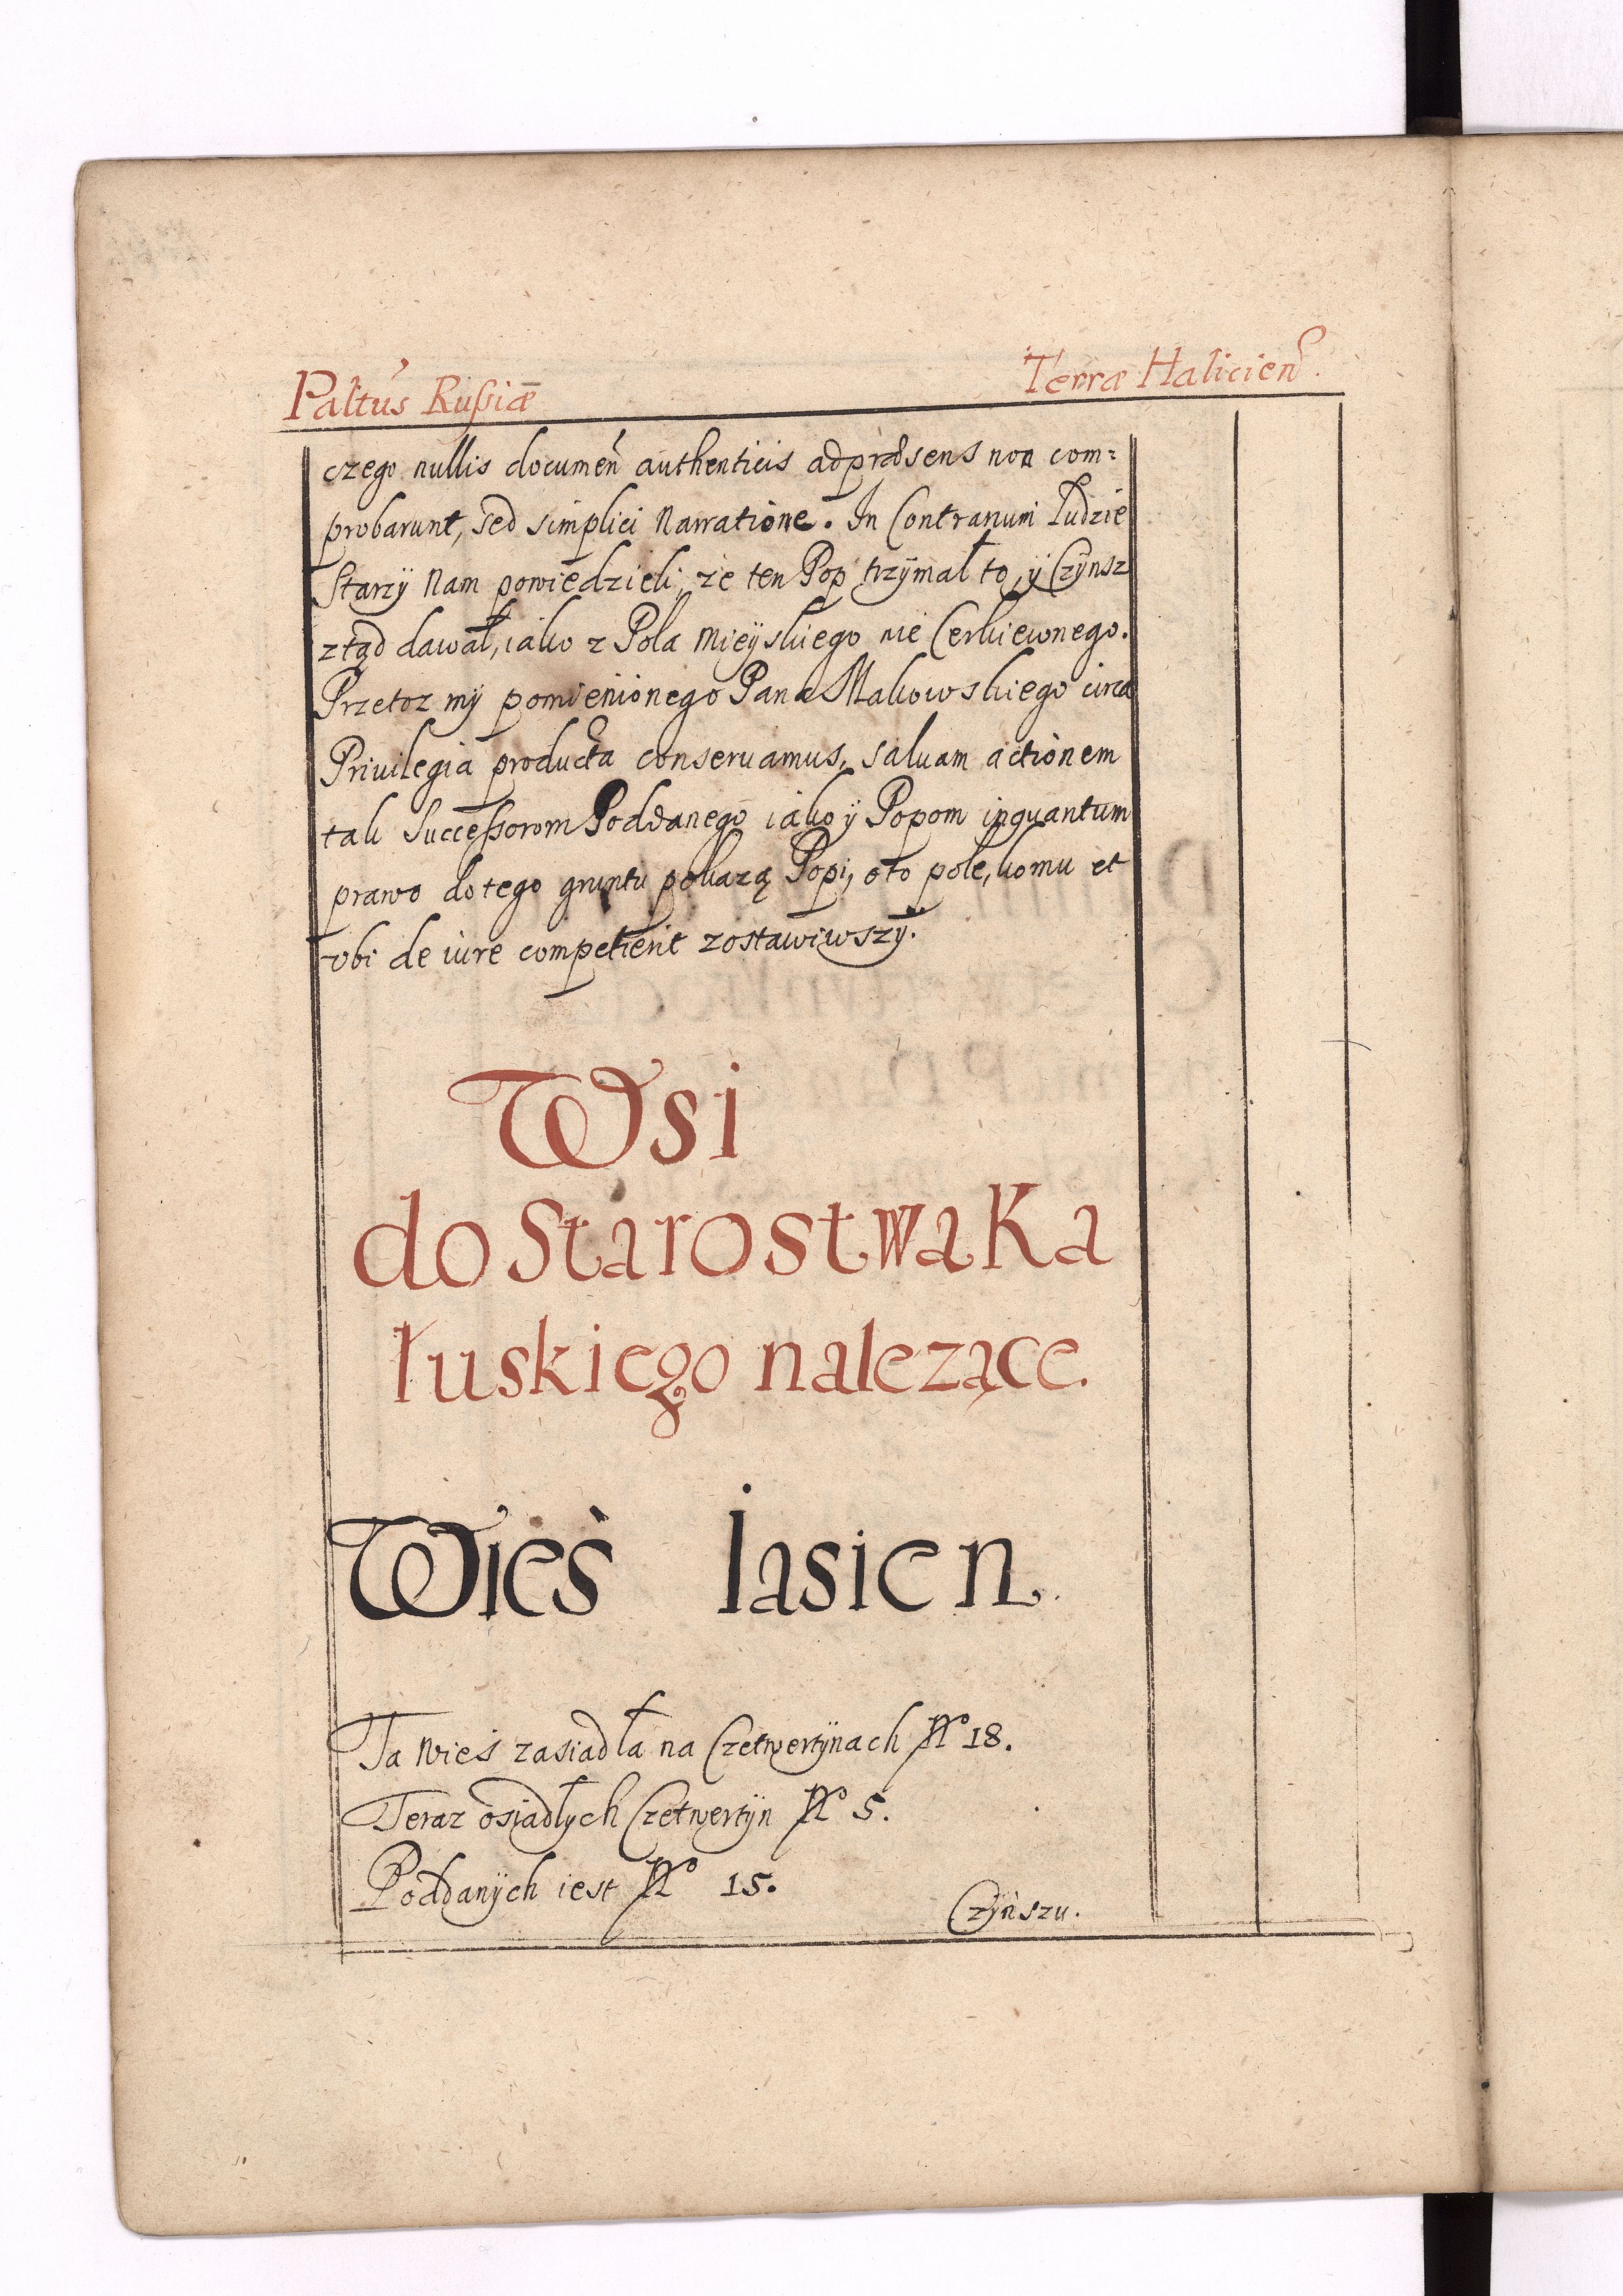 Paltus Rußiæ
Terræ Halicien.
czego nullis documen authenticis ad præsens non com=
probarunt, sed simplici Narratione. In Contrarium ludzie
Starzÿ Nam powiedzieli, ze ten Pop trzÿmał to, ÿ Czÿnsz
ztąd dawał, iako z Pola Mieÿskiego nie Cerkiewnego.
Przetoz mÿ pomienionego Pana Makowskiego circa
Privilegia producta conseruamus, saluam actionem
tak Successorom Poddanego iako ÿ Popom inquantum
prawo do tego gruntu pokazą Popi, o to pole, komu et
vbi de iure competierit zostawiwszÿ.
Wsi
do Starostwa Ka
łuskiego nalezące.
Wieś Iasien.
Ta Wieś zasiadła na Czetwertÿnach No 18.
Teraz osiadłych Czetwertÿn No 5.
Poddanÿch iest No 15.
Czÿnszu.